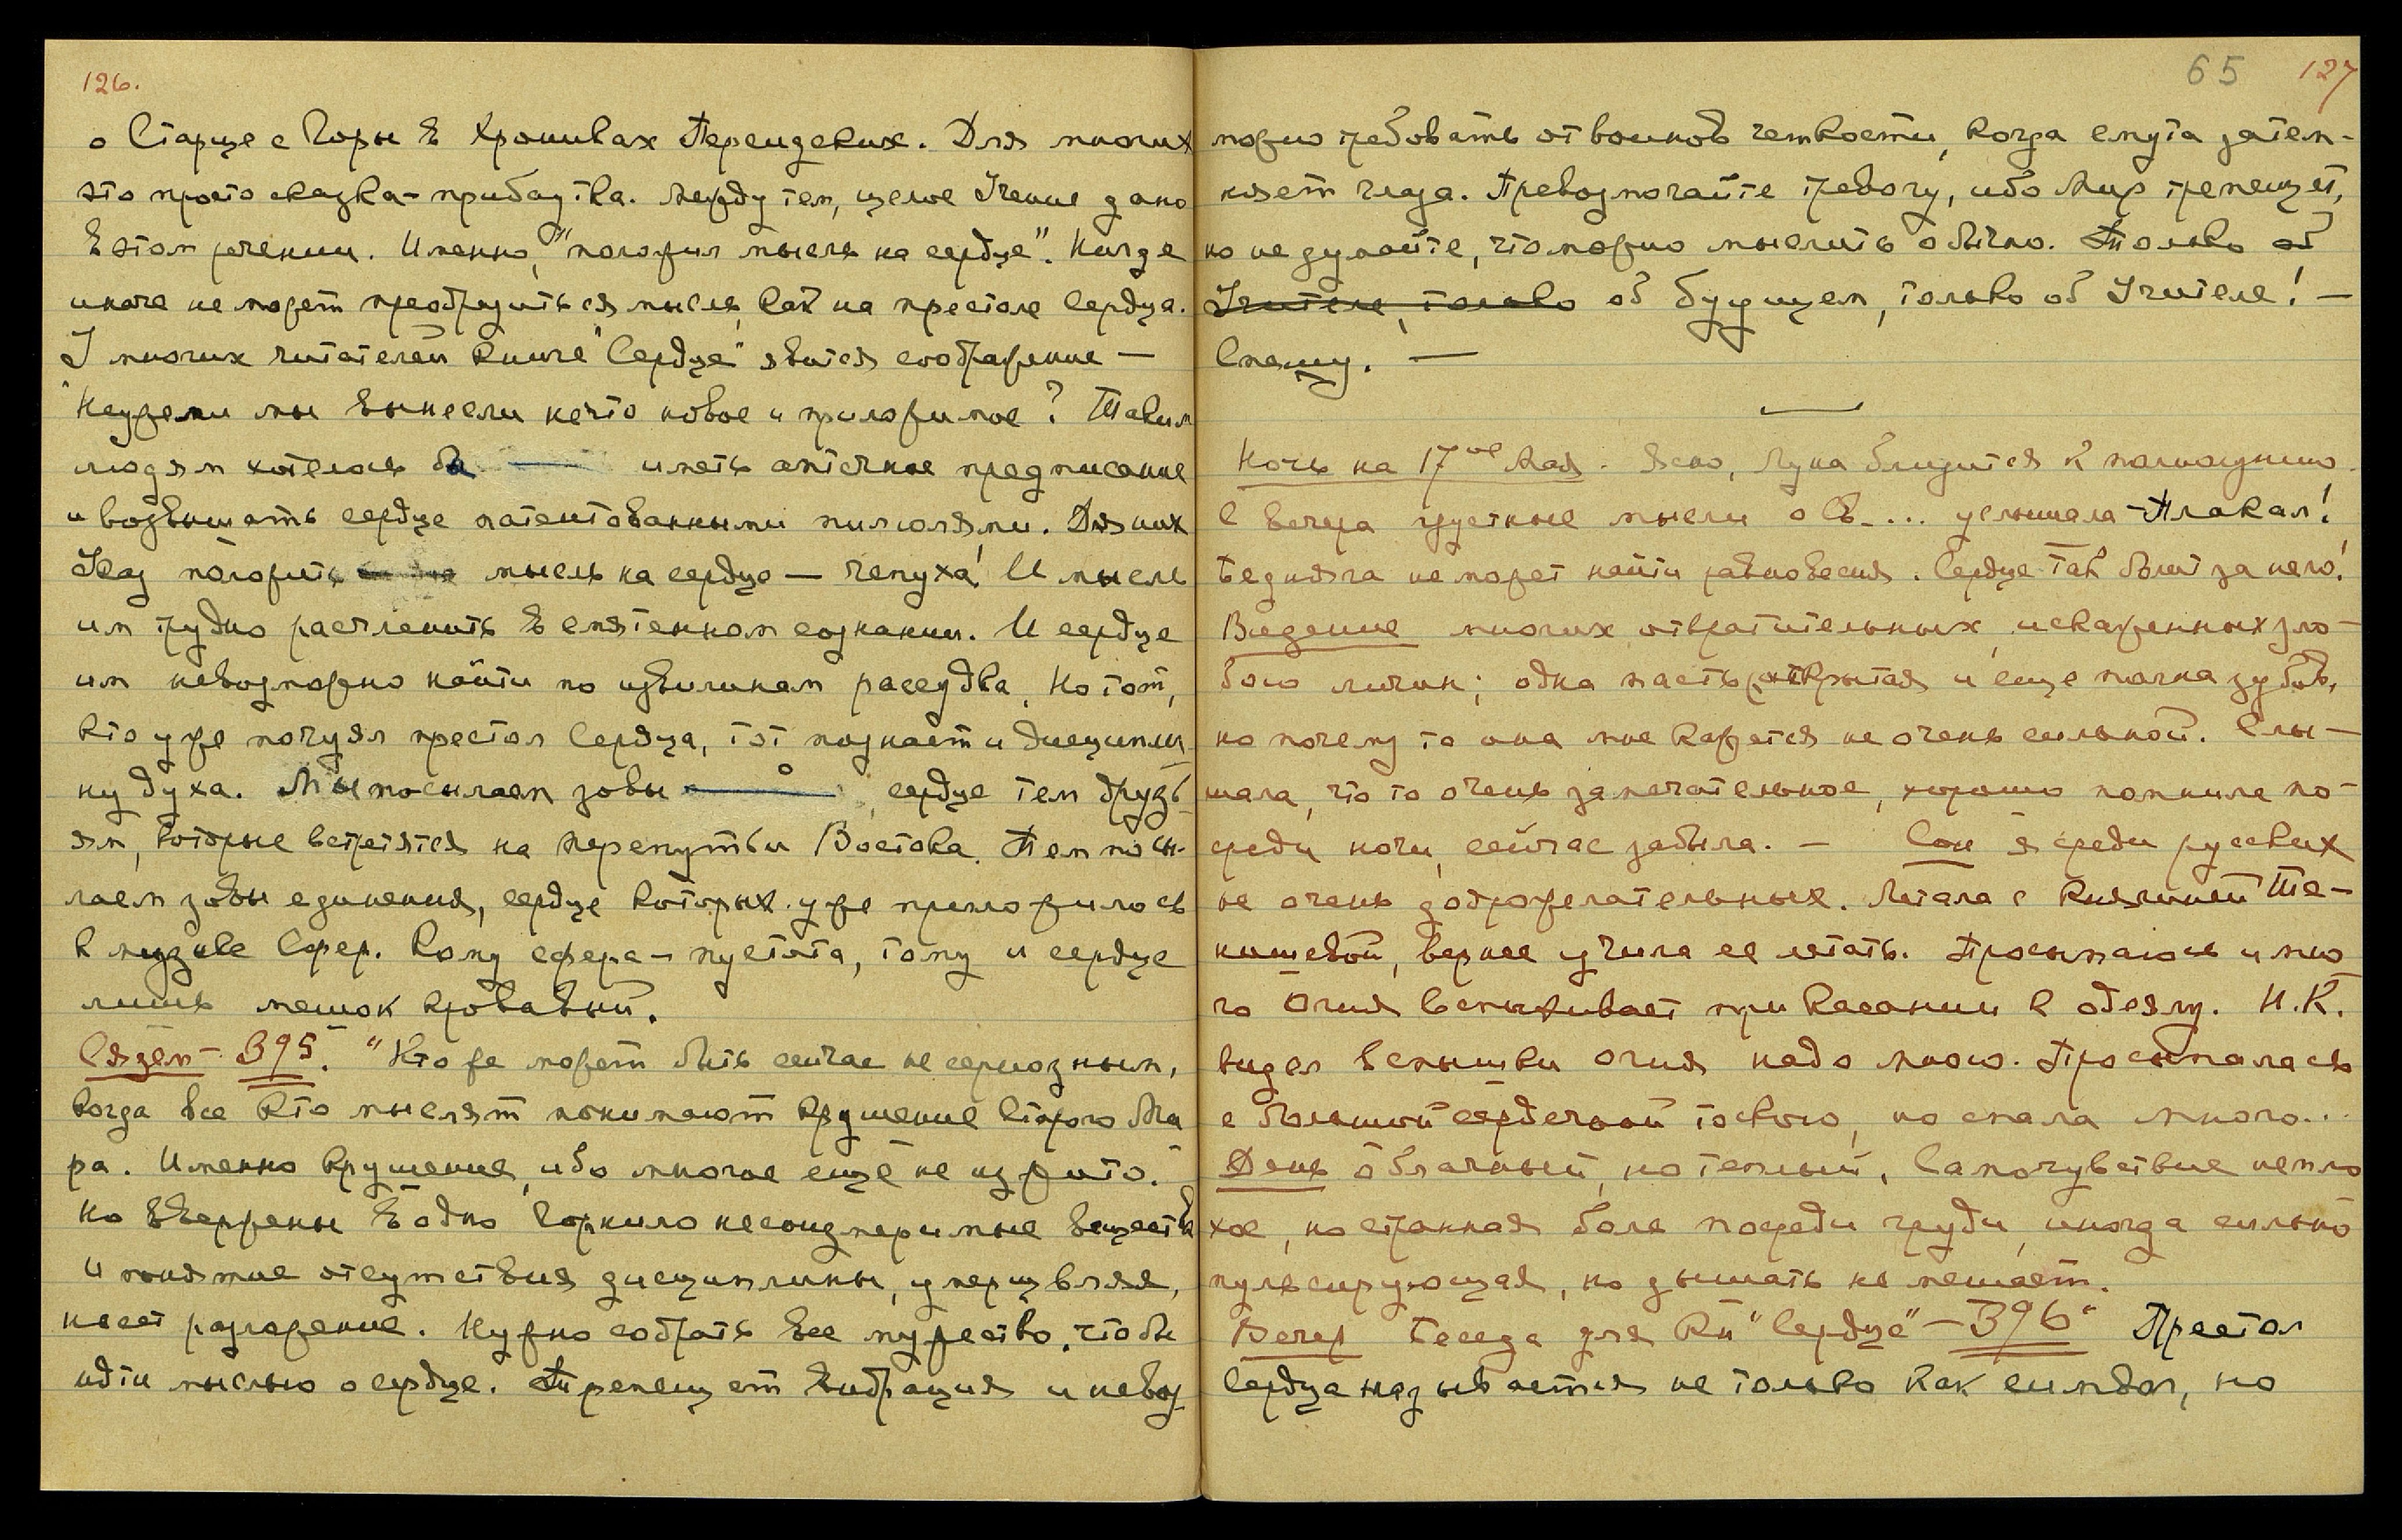 126.
о Старце с Горы в Хрониках Персидских. Для многих
это просто сказка-прибаутка. Между тем, целое Учение дано
в этом речении. Именно, "положил мысль на сердце". Нигде
иначе не может преобразиться мысль, как на престоле Сердца.
У многих читателей книги "Сердце" явится соображение —
"Неужели мы вынесли нечто новое и приложимое? Таким
людям хотелось бы иметь аптечное предписание
и возвышать сердце патентованными пилюлями. Для них
Указ положить мысль на сердце — чепуха! И мысль
им трудно расчленить в смятенном сознании. И сердце
им невозможно найти по извилинам рассудка. Но тот,
кто уже почуял престол Сердца, тот познает и дисципли-
ну духа. Мы посылаем зовы сердце тем друзь-
ям, которые встретятся на перепутьи Востока. Тем посы-
лаем зовы единения, сердце которых уже приложилось
к музыке Сфер. Кому сфера — пустота, тому и сердце
лишь мешок кровавый.
Сязем — 395. "Кто же может быть сейчас не сериозным,
когда все кто мыслят понимают крушение старого Ми
ра. Именно крушение, ибо многое ещё не изжито.
Но ввержены в одно Горнило несоизмеримые веществ
и понятие отсутствия дисциплины, умерщвляя,
несет разложение. Нужно собрать все мужество, чтобы
идти мыслью о сердце. Трепещет вибрация и невоз
65 127
можно требовать от воинов четкости, когда смута затем-
няет глаза. Превозмогайте тревогу, ибо Мир трепещет,
но не думайте, что можно мыслить обычно. Только об
Учителе, только об будущем, только об Учителе! —
Спешу. —
Ночь на 17ое Мая. Ясно, Луна близится к полнолунию.
С вечера грустные мысли о Св.... услышала — Плакал!
Бедняга не может найти равновесия. Сердце так болит за него!
Видение многих отвратительных, искаженных зло-
бою личин; одна пасть раскрытая и еще полна зубов,
но почему то она мне кажется не очень сильной. Слы-
шала, что то очень замечательное, хорошо помнила по-
среди ночи, сейчас забыла. — Сон я среди русских
не очень доброжелательных. Летала с Княгиней Те-
нишевой, вернее учила ее летать. Просыпаюсь и мно
го Огня вспыхивает при касании к одеялу. Н.К.
видел вспышки огня надо мною. Просыпалась
с большой сердечной тоскою, но спала много...
День облачный, но теплый. Самочувствие непло
хое, но странная боль посреди груди, иногда сильно
пульсирующая, но дышать не мешает.
Вечер Беседа для Кн "Сердце" — 396" Престол
Сердца называется не только как символ, но